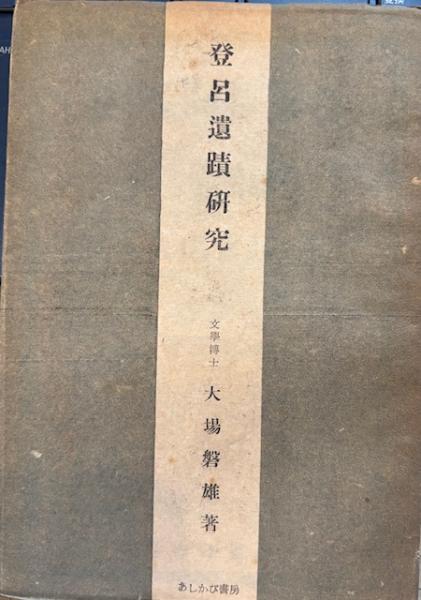 登呂遺蹟硏究
文學博士 大場磐雄著
あしかび書房